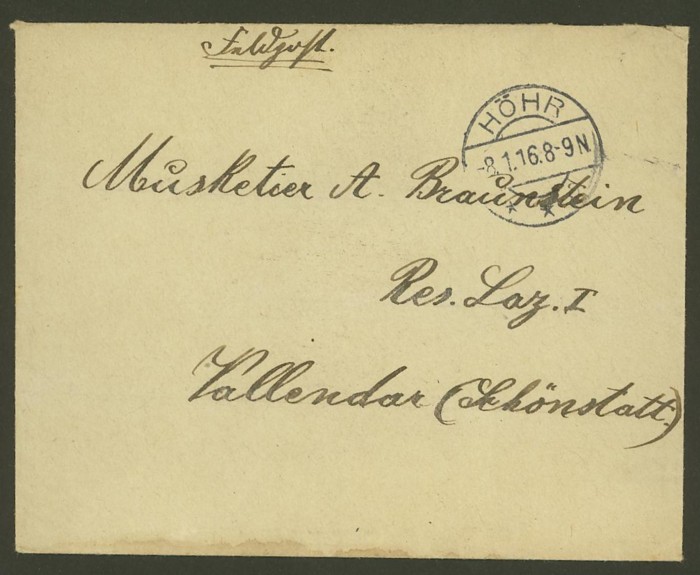 Feldpost.
HÖHR
8.1.16.8-9N
Musketier A. Braunstein
Res. Laz. I
Vallendar (Schönstatt.)